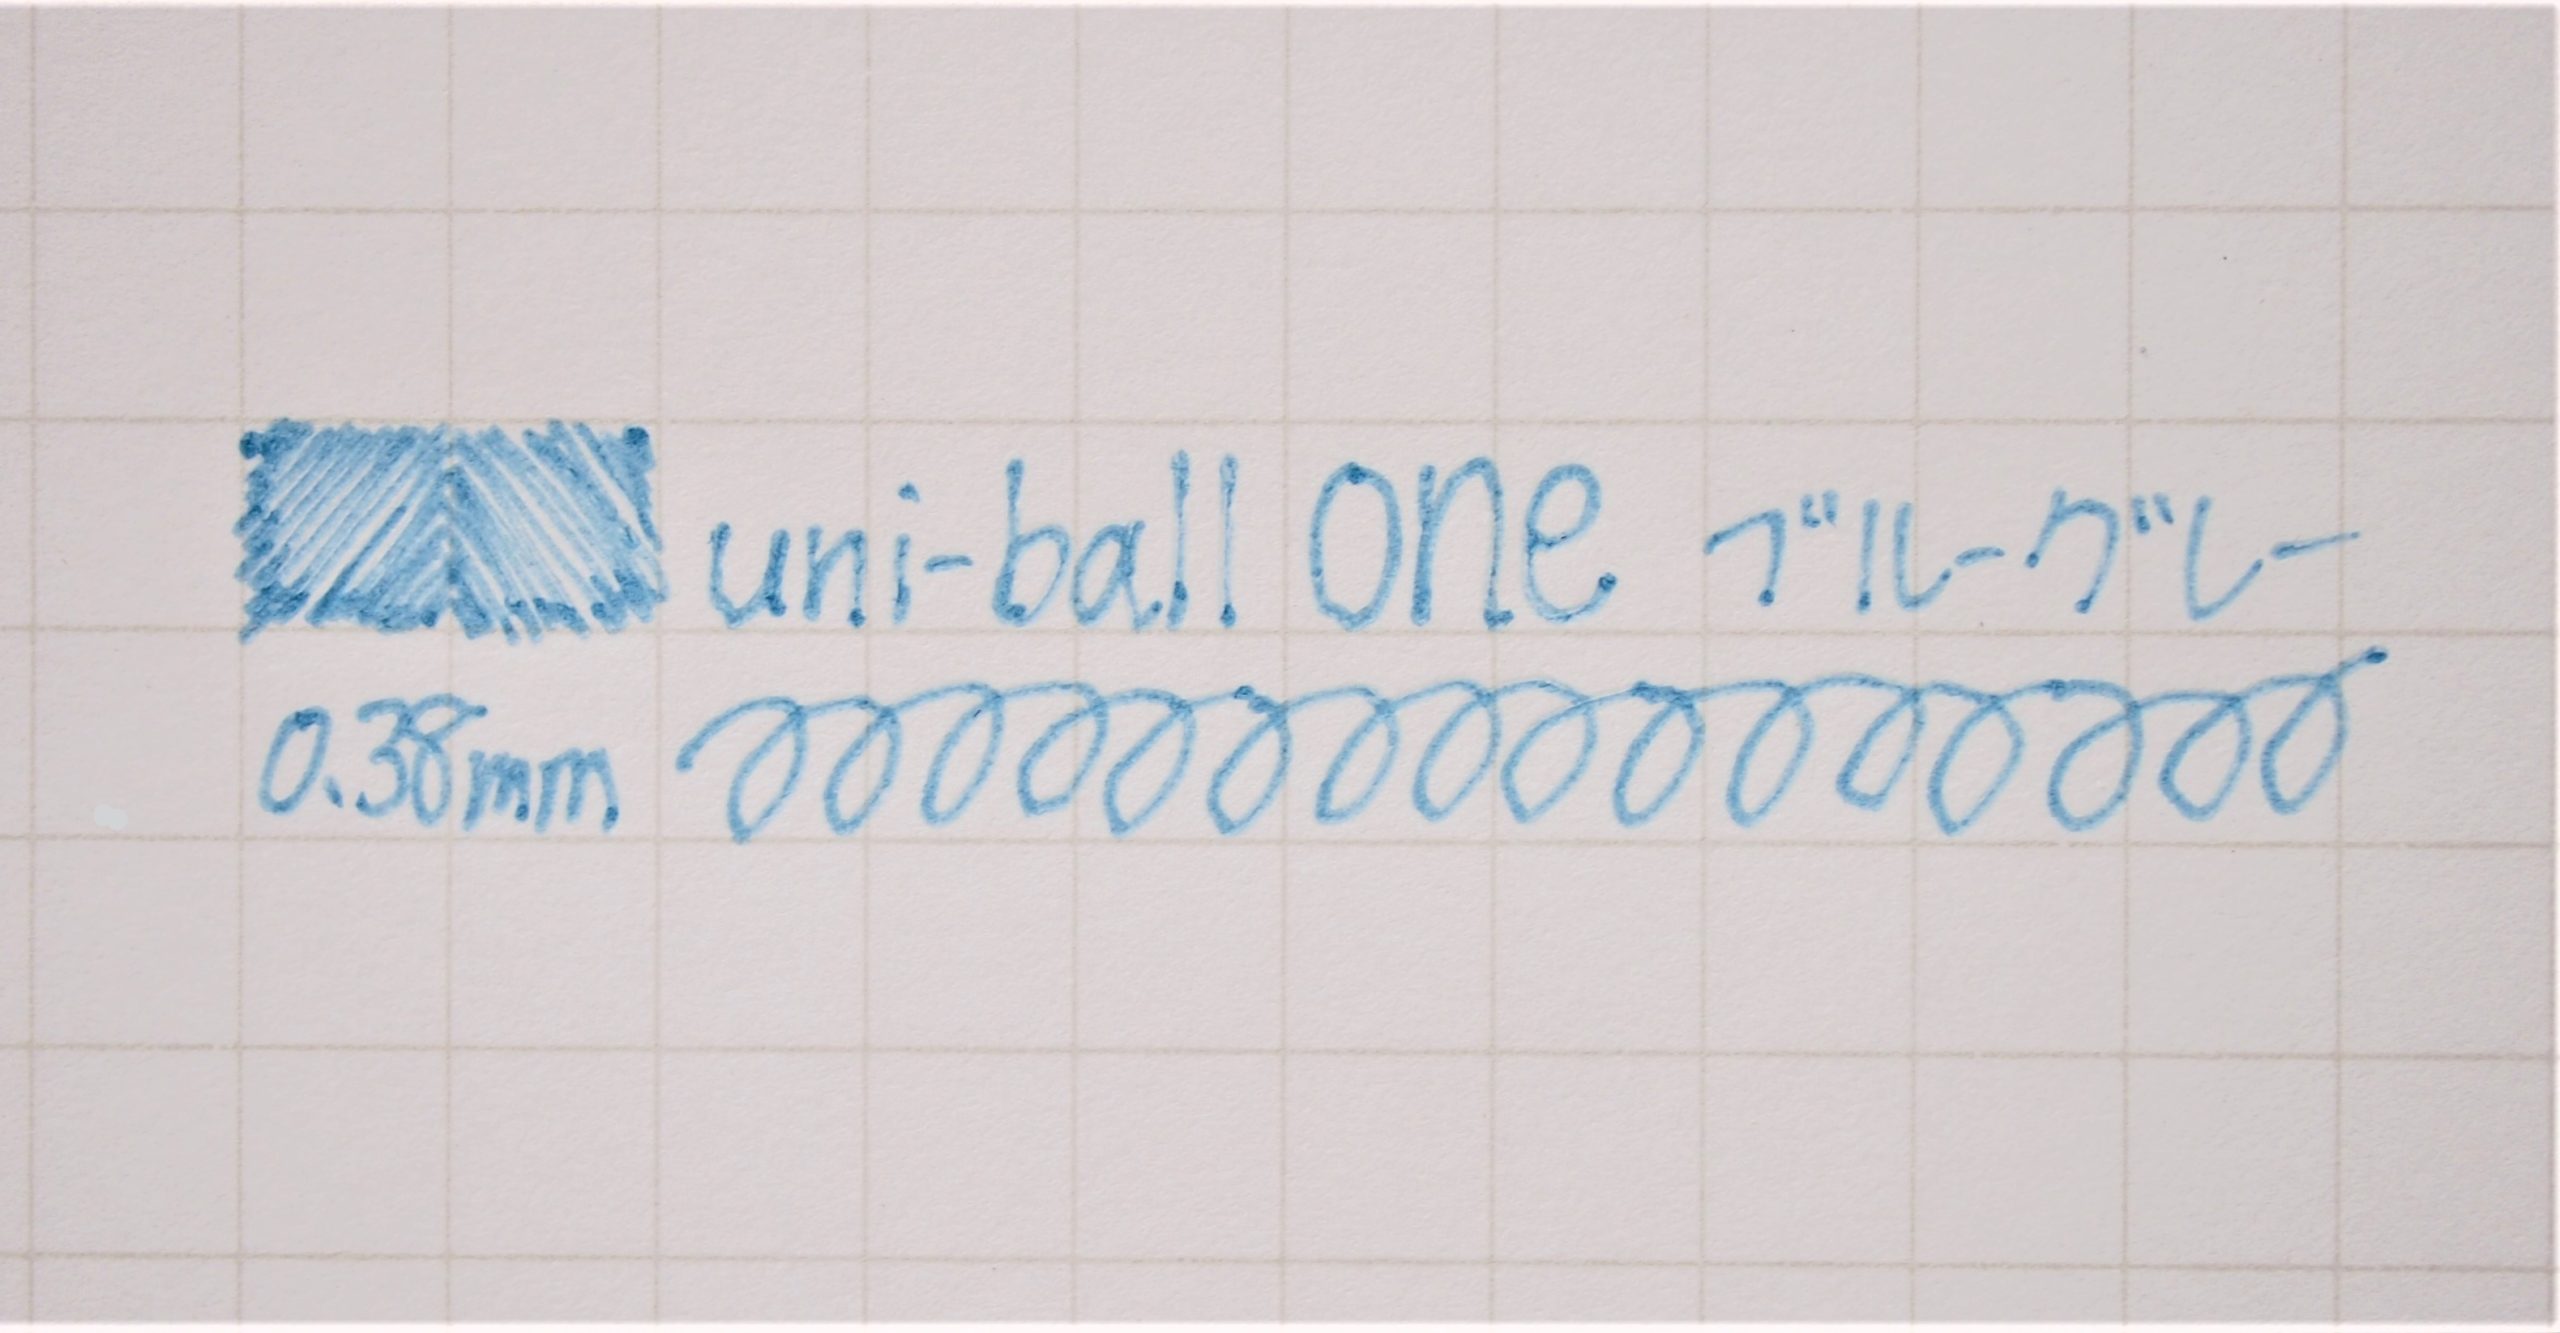 uni-ball one ブルーグレー
0.38mm